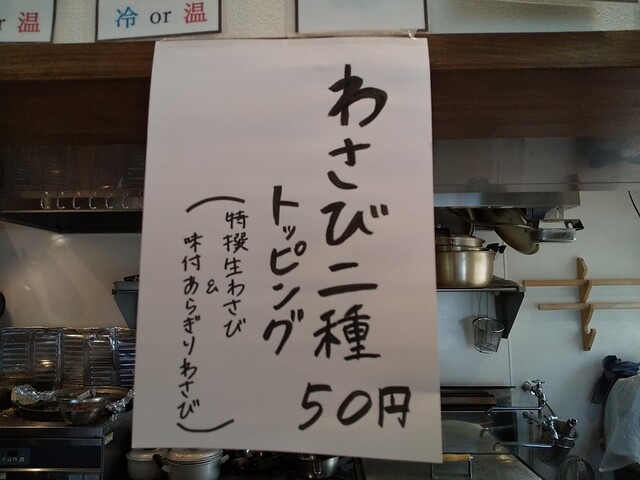 温
冷 or 温
わさび二種
トッピング
50円
(特撰生わさび
&
味付あらぎりわさび)